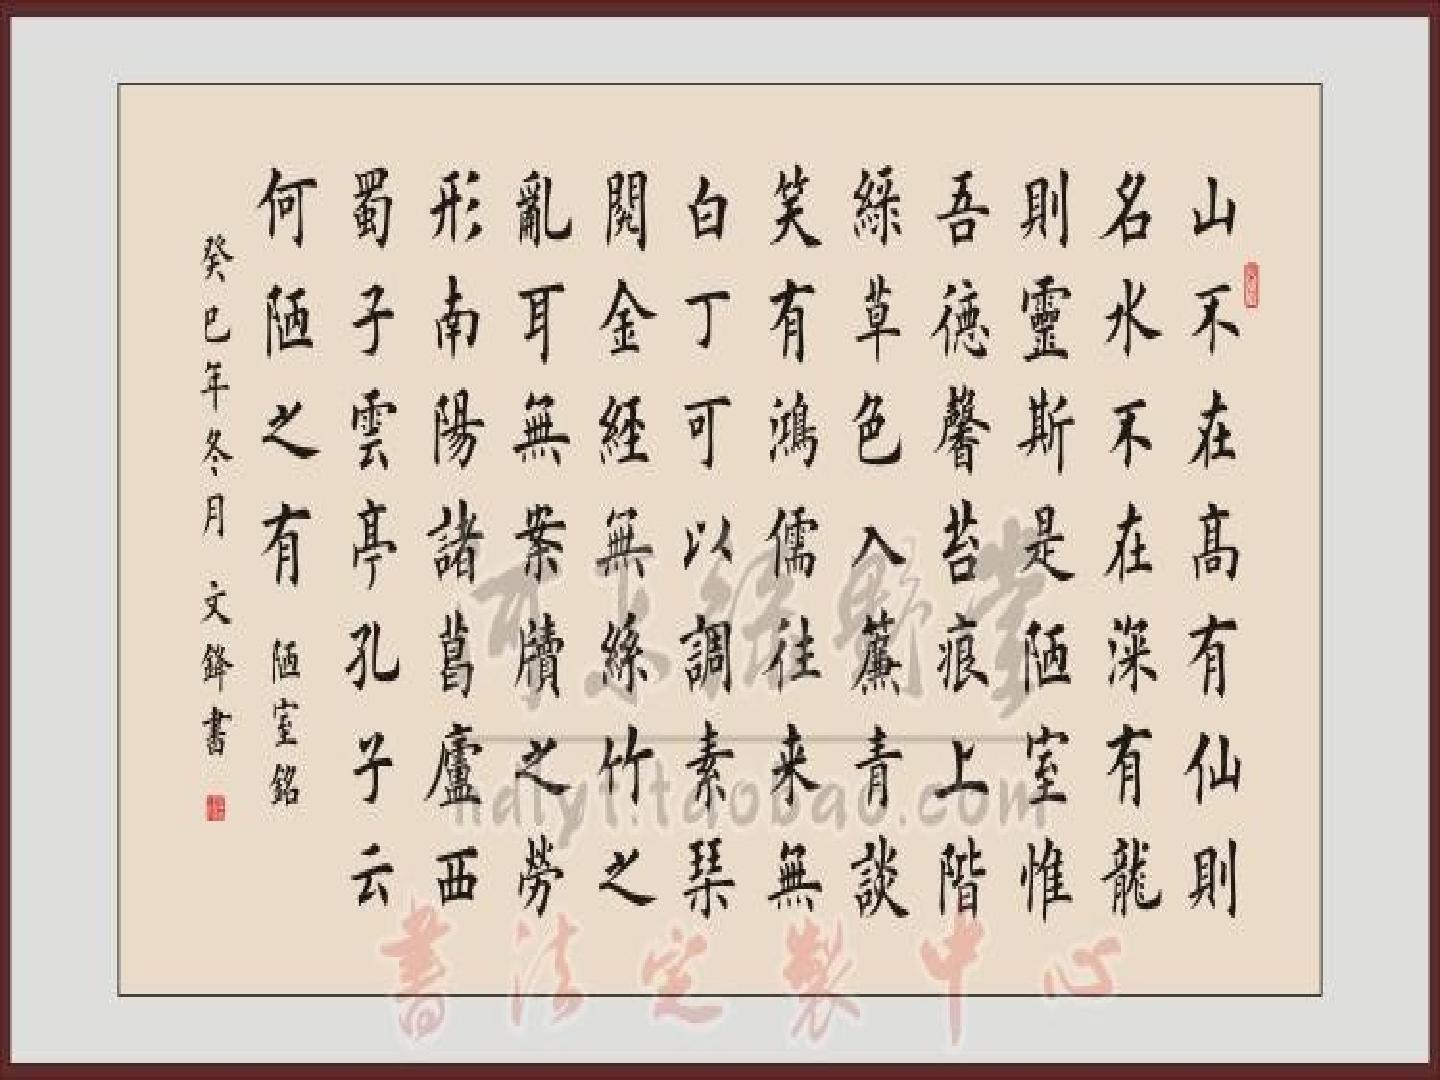 山不在高有仙則
名水不在深有龍
則靈斯是陋室惟
吾德馨苔痕上階
綠草色入簾青談
笑有鴻儒往来無
白丁可以調素琹
閱金經無絲竹之
亂耳無案牘之勞
形南陽諸葛廬西
蜀子雲亭孔子云
何陋之有 陋室銘
癸巳年冬月 文鋒書
taobao.com
書法定製中心